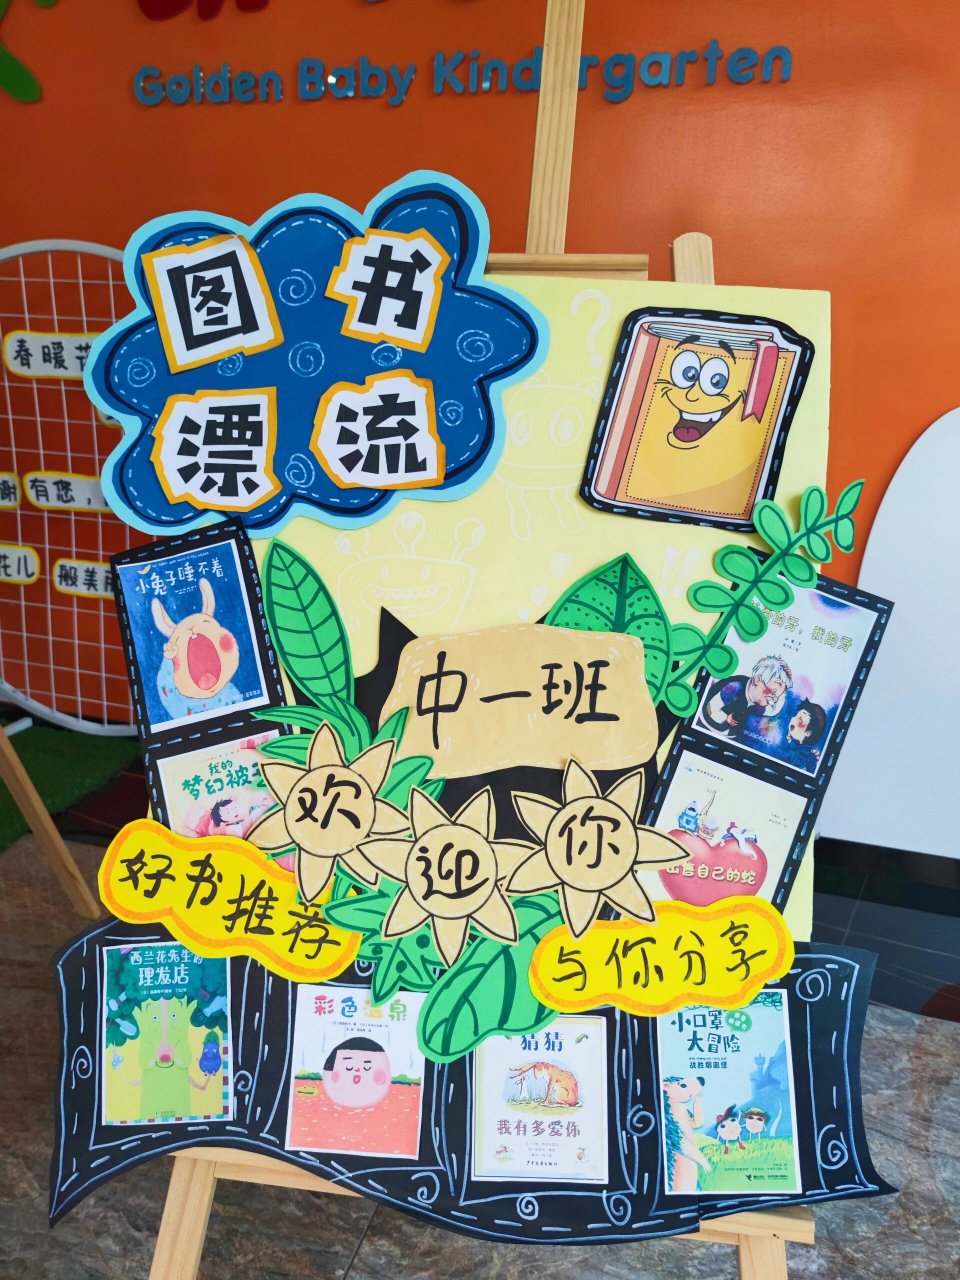 Golden Baby Kindergarten
图书
漂流
春暖花
谢有您，
花儿一般美丽
小兔子睡不着
我的牙
中一班
我的
梦幻被子
欢迎你
出售自己的蛇
好书推荐
与你分享
西兰花先生的
理发店
彩色温泉
猜猜
我有多爱你
小口罩
大冒险
战胜烟囱怪